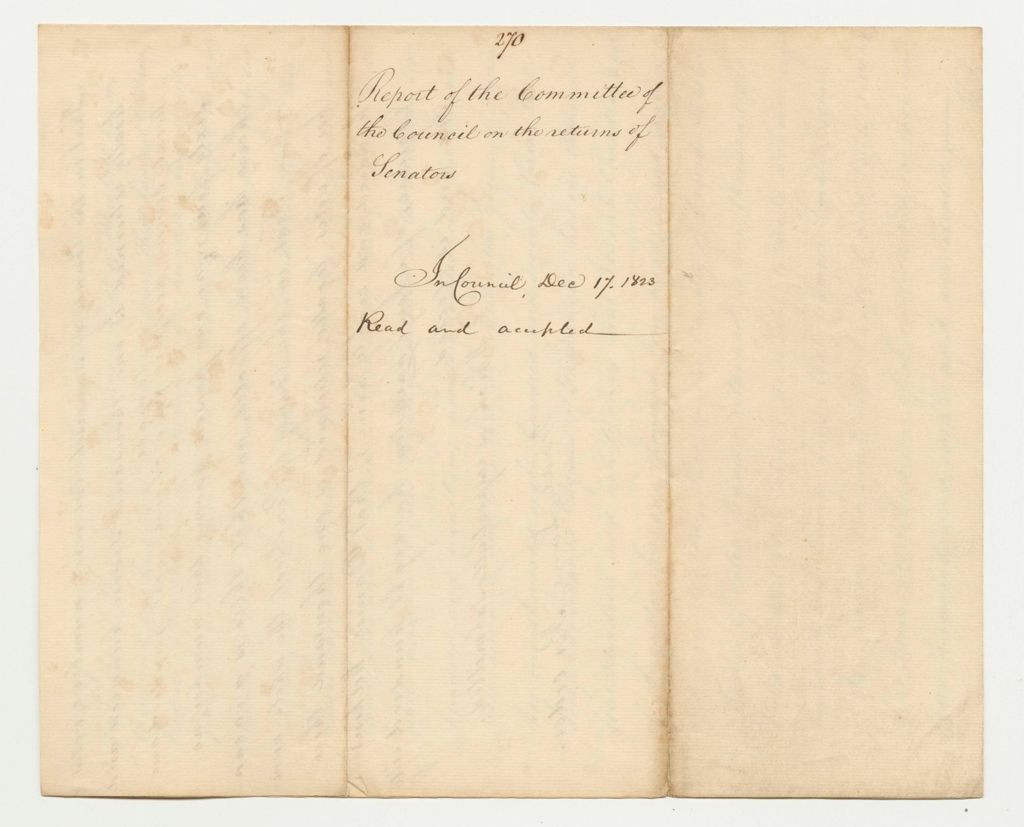 270
Report of the Committee of
the Council on the returns of
Senators
In Council, Dec 17. 1823
Read and accepted